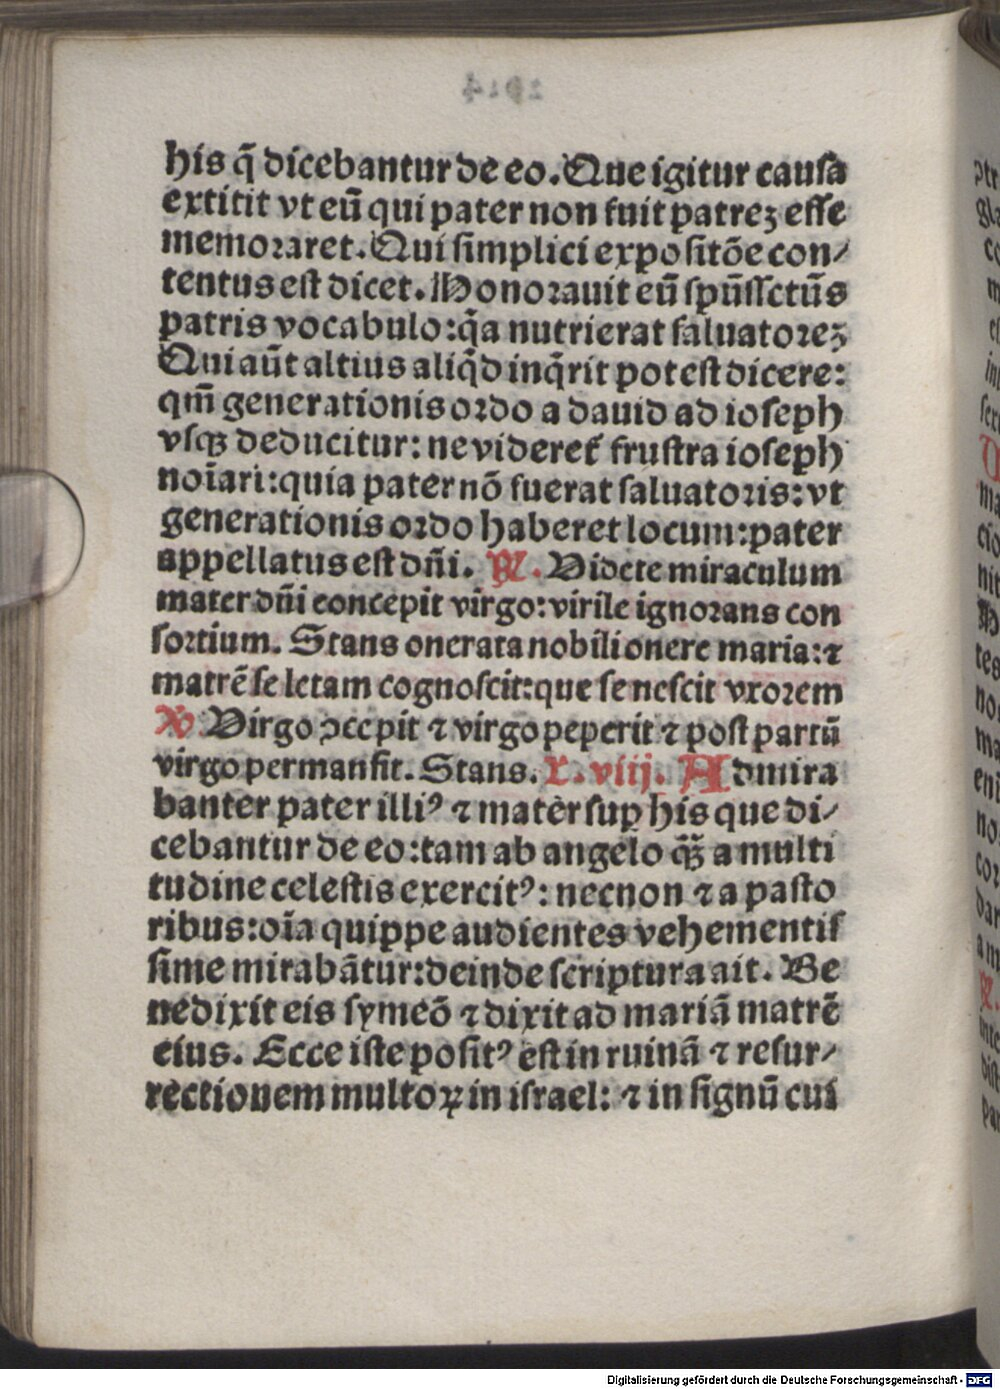 his q̃ dicebantur de eo. Que igitur causa
extitit vt eũ qui pater non fuit patreꝫ esse
memoraret. Qui simplici expositõe con⸗
tentus est dicet. Honorauit eũ spũssctũs
patris vocabulo: q̃a nutrierat saluatoreꝫ
Qui aũt altius aliq̃d inq̃rit potest dicere:
qm̃ generationis ordo a dauid ad ioseph
vsqꝫ deducitur: ne videret᷑ frustra ioseph
noĩari: quia pater nõ fuerat saluatoris: vt
generationis ordo haberet locum: pater
appellatus est dñi. ℟. Videte miraculum
mater dñi concepit virgo: virile ignorans con
sortium. Stans onerata nobili onere maria: ⁊
matrẽ se letam cognoscit: que se nescit vxorem
℣ Virgo ↄcepit ⁊ virgo peperit ⁊ post partũ
virgo permansit. Stans. L. viij. Admira
banter pater illiꝰ ⁊ mater suꝑ his que di⸗
cebantur de eo: tam ab angelo qꝫ̃ a multi
tudine celestis exercitꝰ: necnon ⁊ a pasto
ribus: oĩa quippe audientes vehementis
sime mirabãtur: deinde scriptura ait. Be
nedixit eis symeõ ⁊ dixit ad mariã matrẽ
eius. Ecce iste positꝰ est in ruinã ⁊ resur⸗
rectionem multoꝝ in israel: ⁊ in signũ cui
Digitalisierung gefördert durch die Deutsche Forschungsgemeinschaft - DFG